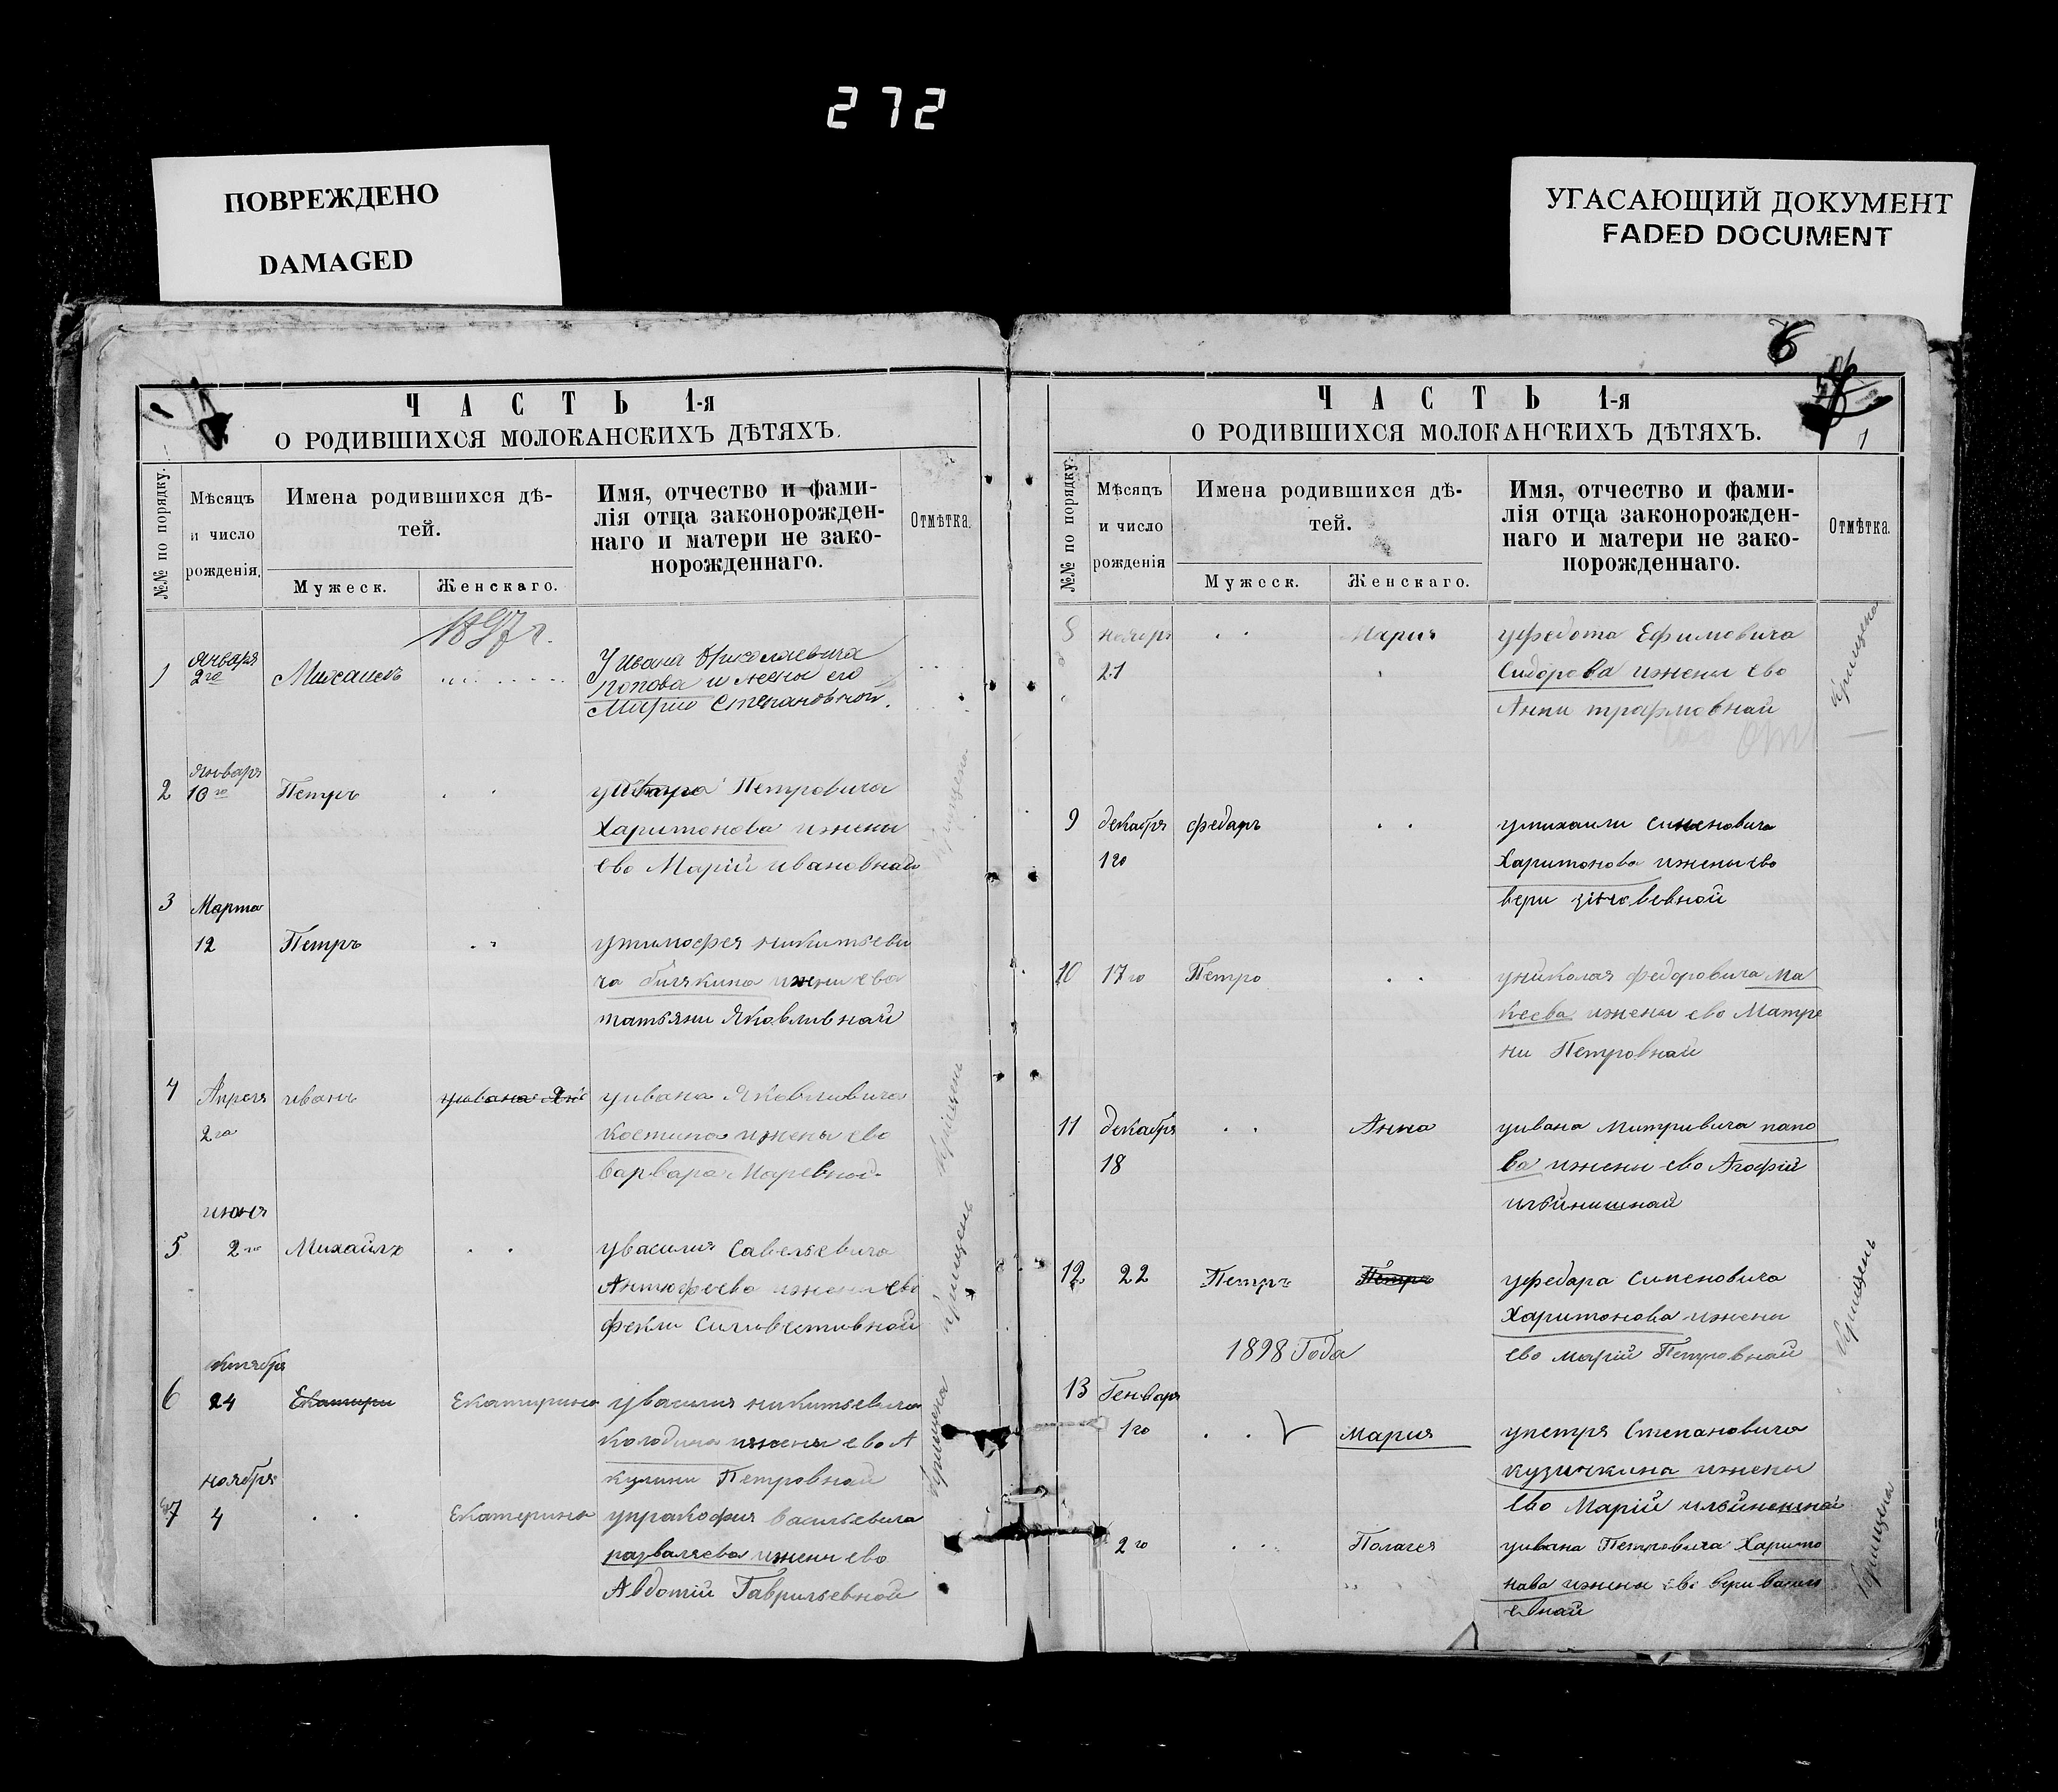 272
ПОВРЕЖДЕНО
DAMAGED
УГАСАЮЩИЙ ДОКУМЕНТ
FADED DOCUMENT
ЧАСТЬ 1-я
О РОДИВШИХСЯ МОЛОКАНСКИХЪ ДѢТЯХЪ.
№№ по порядку.
Мѣсяцъ
и число
рожденія.
Имена родившихся дѣ-
тей.
Мужеск.
Женскаго.
Имя, отчество и фами-
лія отца законорожден-
наго и матери не зако-
норожденнаго.
Отмѣтка.
1897 г.
1
Января
2го
Михаилъ
У Ивана Николаевича
Попова и жены его
Марии Степановной.
2
Январь
10 го
Петръ
Петровича
Харитонова ижены
ево Марій ивановнай
крищена
3
Марта
12
Петръ
утимофея никитьеви
ча ижени ева
татьяни Яковливнай
4
Апреля
2го
иванъ
уивана Як
уивана Яковливича
костина ижены ево
варвара Маревной
крищень
5
июня
2го
Михайлъ
увасилия Савельевича
Антюфеева ижени ево
фекли Силивестивной
крищень
6
октября
24
Екатери
Екатирина
увасилия никитьевича
Колодина ижены ево А
кулини Петровнай
крищена
7
ноября
4
Екатирина
упракофия васильевича
разваляева ижени ево
Авдотій Гаврильевной
6
1
ЧАСТЬ 1-я
О РОДИВШИХСЯ МОЛОКАНСКИХЪ ДѢТЯХЪ.
№№ по порядку.
Мѣсяцъ
и число
рожденія
Имена родившихся дѣ-
тей.
Мужеск.
Женскаго.
Имя, отчество и фами-
лія отца законорожден-
наго и матери не зако-
норожденнаго.
Отмѣтка.
8
21
Мария
уфедота Ефимовича
Сидорова ижены ево
Анни трафмовнай
крищена
9
декабря
1го
федаръ
умихаили сименовича
Харитонова ижены ево
вери
10
17го
Петро
униколая федоровича Ма
кеева ижены ево Матре
ни Петровнай
11
декабря
18
Анна
уивана Митривича папо
ва ижены ево Агофій
ильйнишнай
12
22
Петръ
Петръ
уфедара Сименовича
Харитонова ижени
ево марій Петровнай
крищень
1898 Года
13
Генваря
1го
Мария
упетря Степановича
кузичкина ижены
ево Марій ильйнишнай
2го
Полагея
уивана Петровича Харито
нава ижены ево вери васил
евнай
крищена